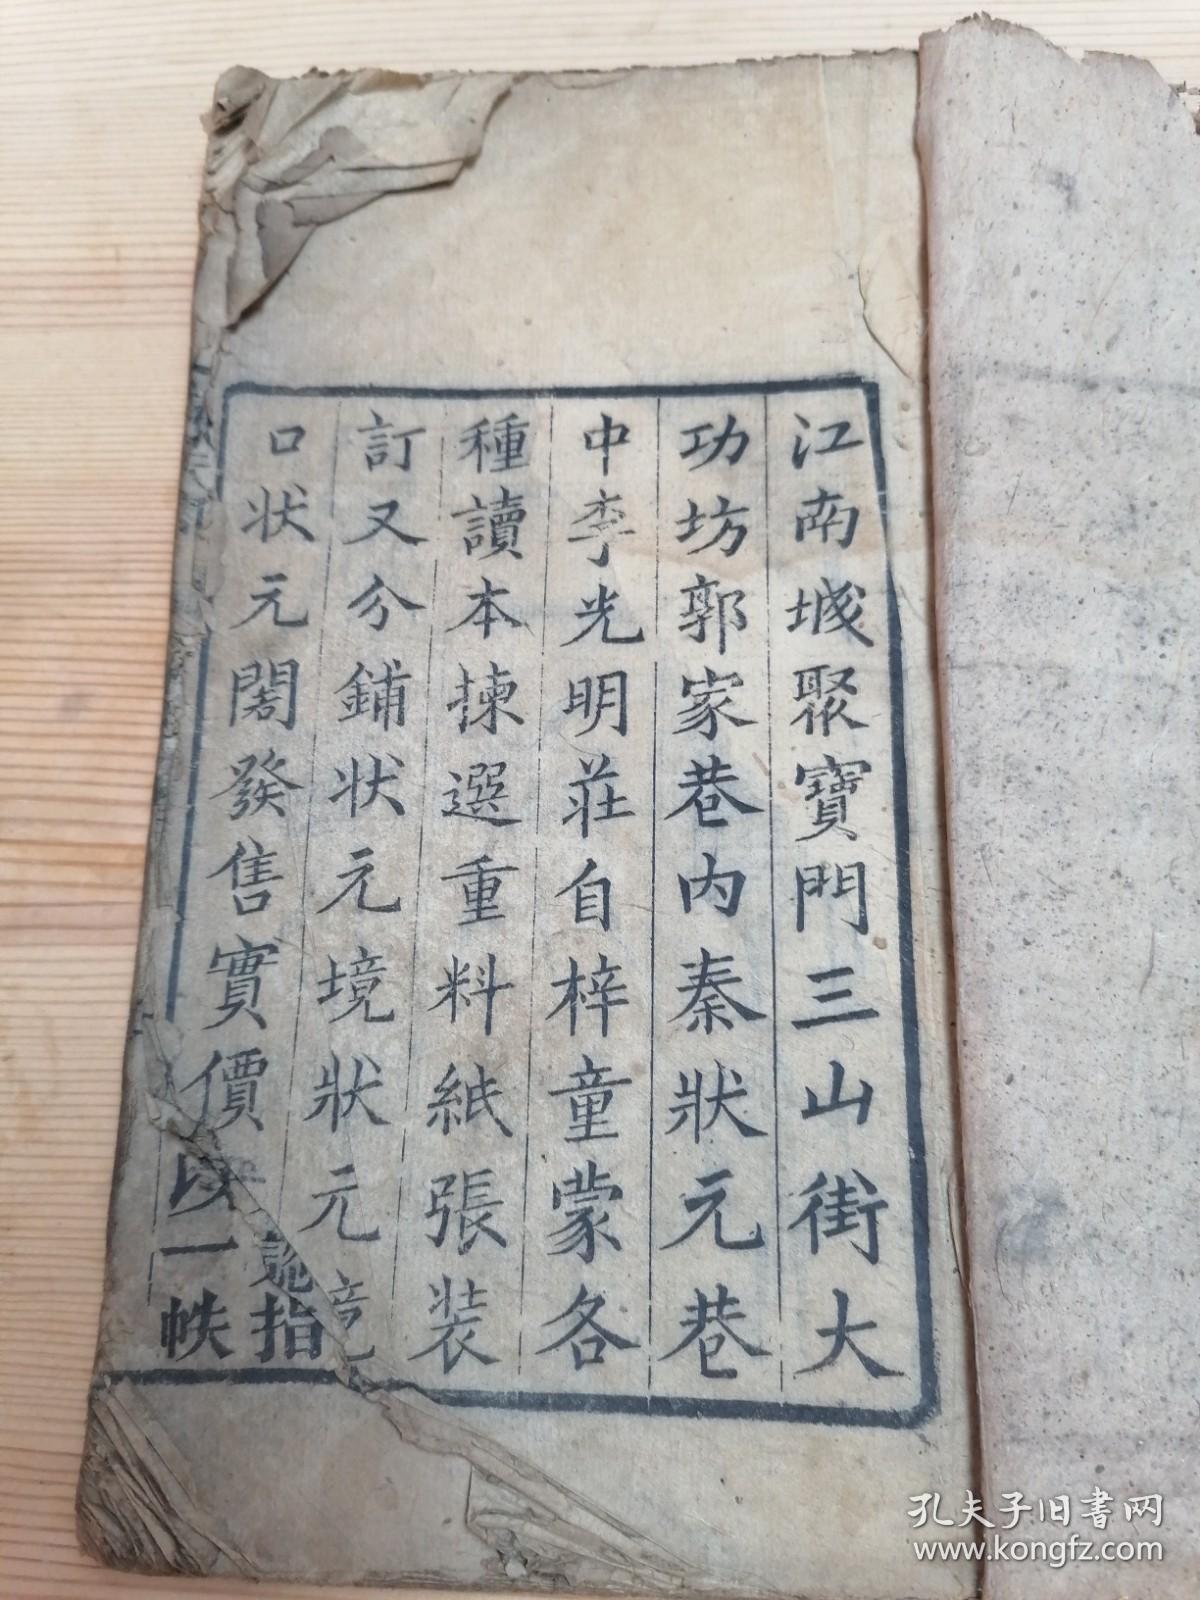 江南城聚寶門三山街大
功坊郭家巷内秦狀元巷
中李光明莊自梓童蒙各
種讀本揀選重料紙張裝
訂又分鋪狀元境狀元境
口狀元閣發售實價
一帙
指
孔夫子旧书网
www.kongfz.com